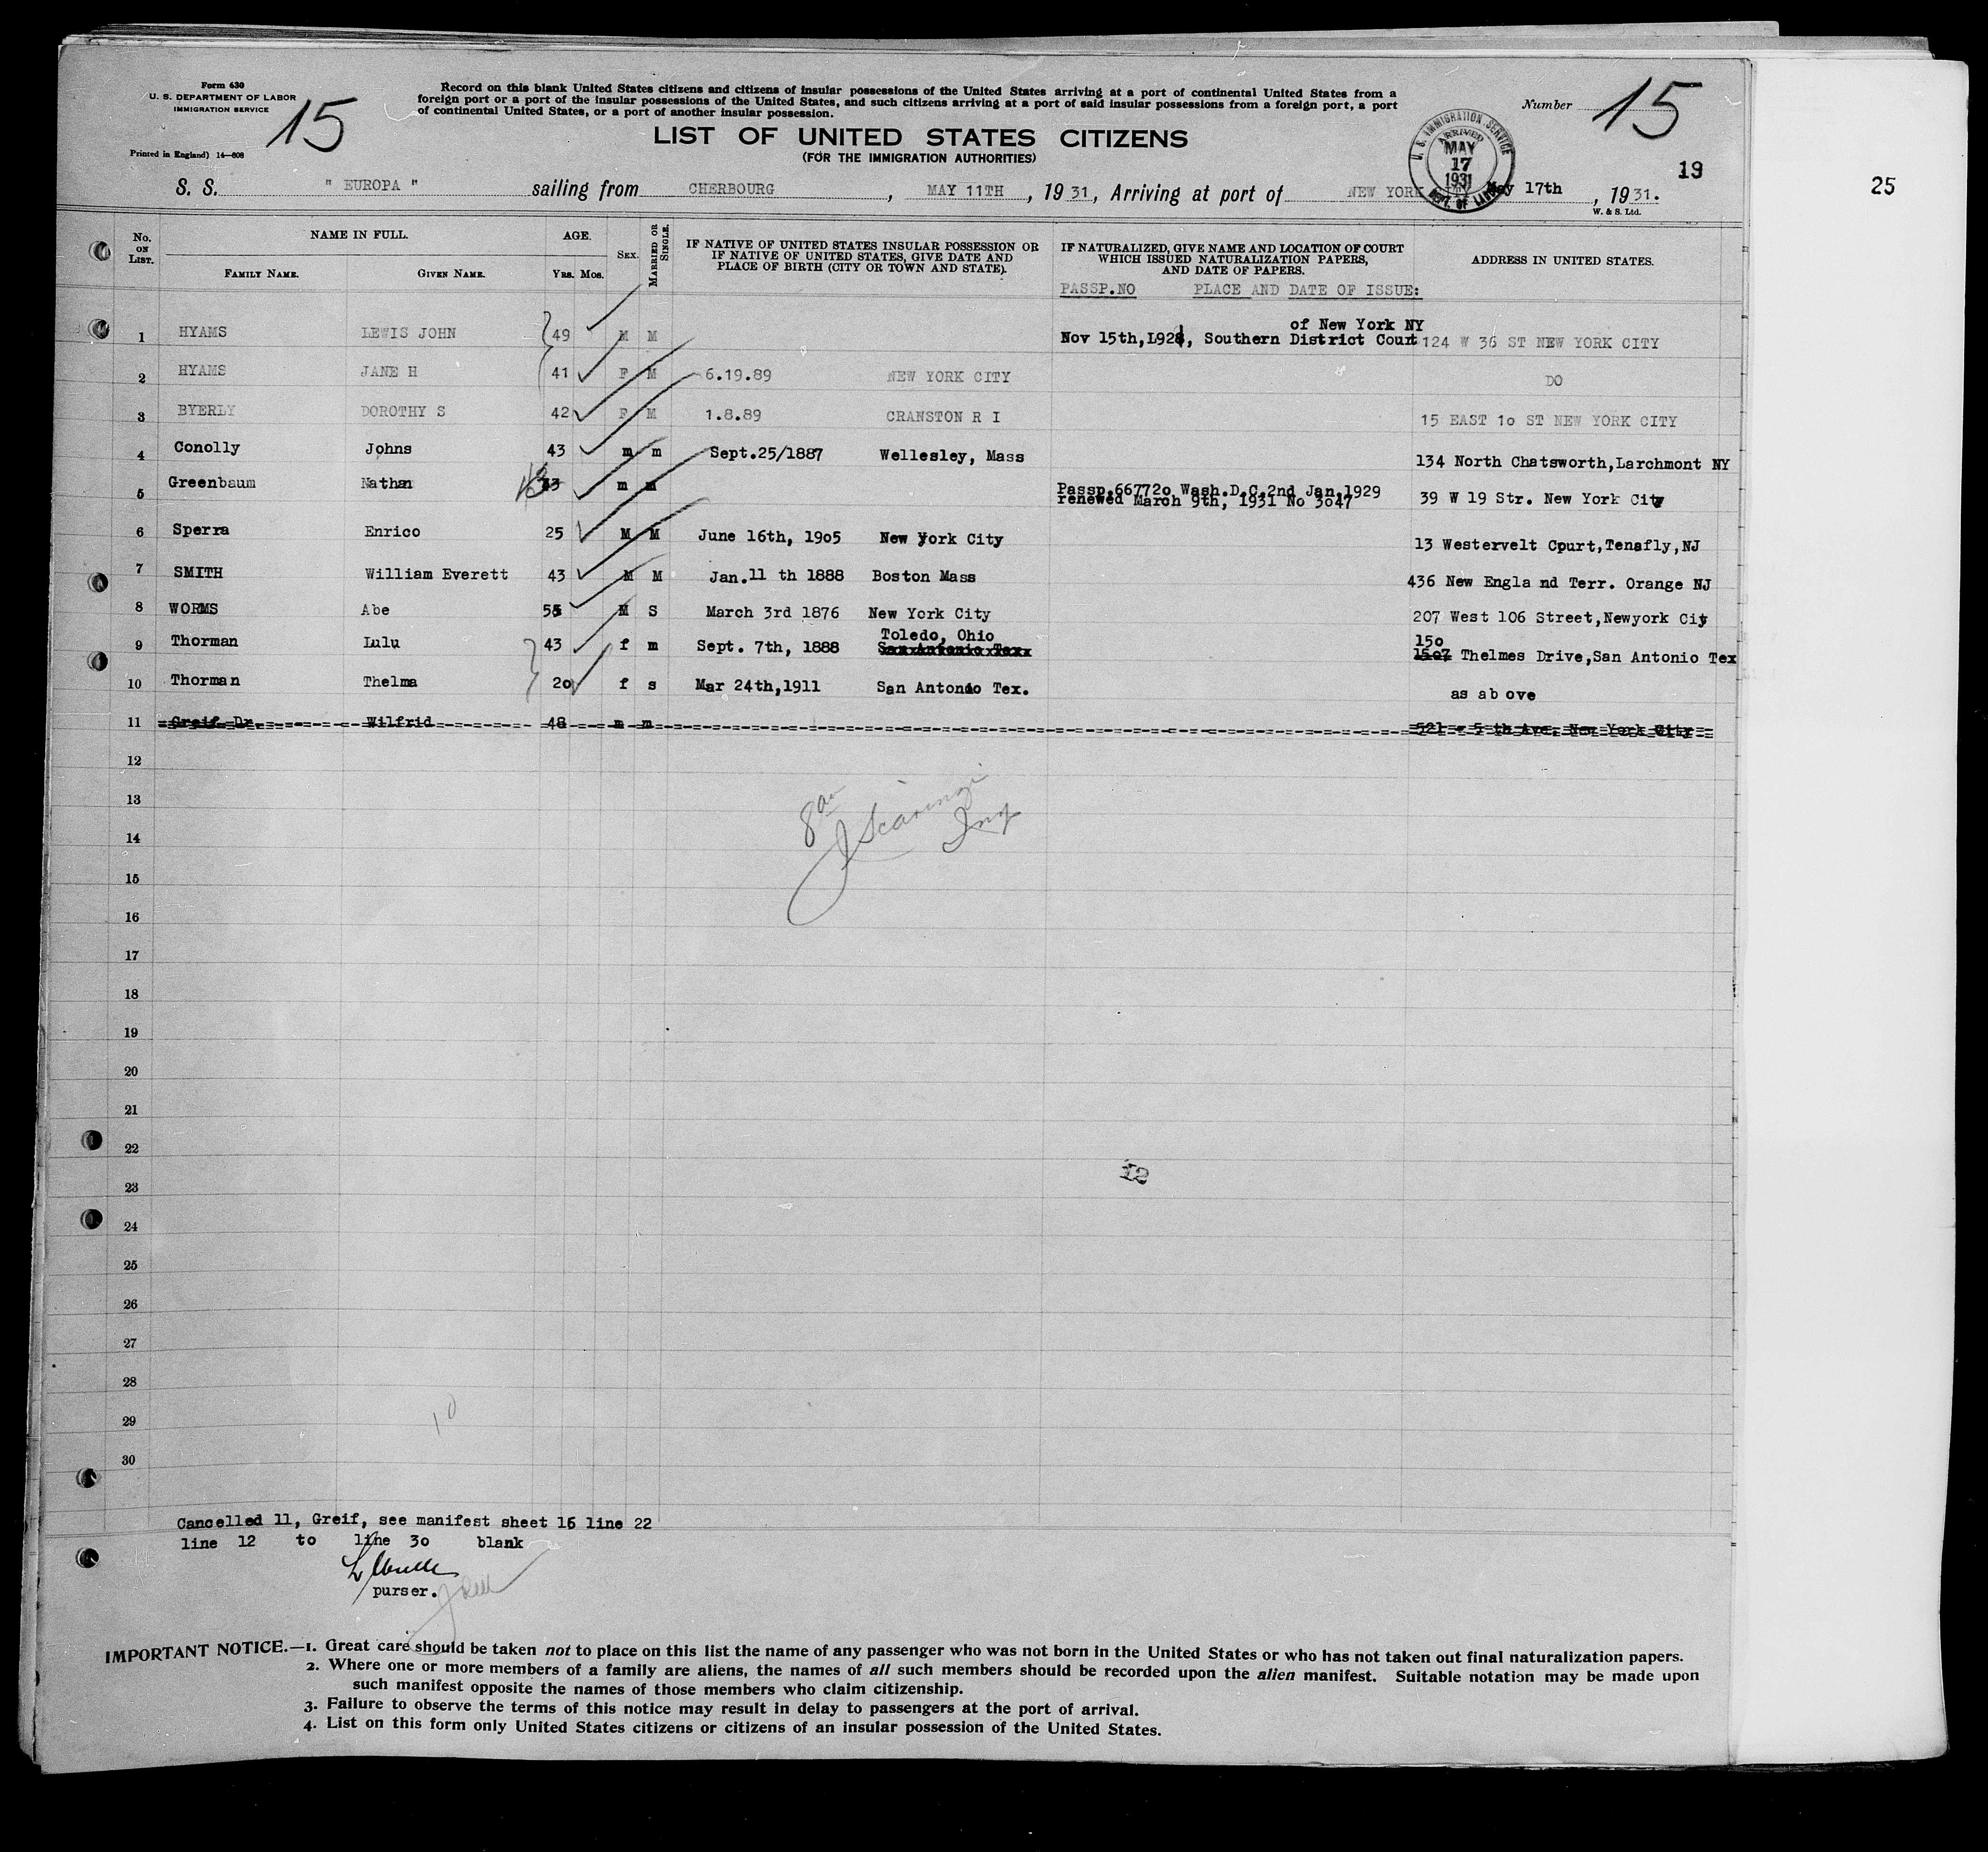 Form 630
U. S. DEPARTMENT OF LABOR
IMMIGRATION SERVICE
15
Printed in England) 14—608
Record on this blank United States citizens and citizens of insular possessions of the United States arriving at a port of continental United States from a
foreign port or a port of the insular possessions of the United States, and such citizens arriving at a port of said insular possessions from a foreign port, a port
of continental United States, or a port of another insular possession.
LIST OF UNITED STATES CITIZENS
(FOR THE IMMIGRATION AUTHORITIES)
Number 15
U. S. IMMIGRATION SERVICE
ARRIVED
MAY
17
1931
DEPT. OF LABOR
19
25
S. S. " EUROPA " sailing from CHERBOURG, MAY 11TH, 1931, Arriving at port of NEW YORK May 17th, 1931.
W. & S. Ltd.
No. ON LIST. NAME IN FULL. AGE. SEX. MARRIED OR SINGLE. IF NATIVE OF UNITED STATES INSULAR POSSESSION OR IF NATIVE OF UNITED STATES, GIVE DATE AND PLACE OF BIRTH (CITY OR TOWN AND STATE). IF NATURALIZED, GIVE NAME AND LOCATION OF COURT WHICH ISSUED NATURALIZATION PAPERS, AND DATE OF PAPERS. ADDRESS IN UNITED STATES.
FAMILY NAME. GIVEN NAME. YRS. MOS.
PASSP.NO PLACE AND DATE OF ISSUE:
of New York NY
1 HYAMS LEWIS JOHN 49 M M Nov 15th,1928, Southern District Court 124 W 36 ST NEW YORK CITY
2 HYAMS JANE H 41 F M 6.19.89 NEW YORK CITY DO
3 BYERLY DOROTHY S 42 F M 1.8.89 CRANSTON R I 15 EAST 1o ST NEW YORK CITY
4 Conolly Johns 43 m m Sept.25/1887 Wellesley, Mass 134 North Chatsworth,Larchmont NY
5 Greenbaum Nathan 43 m m Passp.66772o Wash.D.C.2nd Jan.1929 39 W 19 Str. New York City
renewed March 9th, 1931 No 3o47
6 Sperra Enrico 25 M M June 16th, 19o5 New York City 13 Westervelt Cpurt,Tenafly,NJ
7 SMITH William Everett 43 M M Jan.11 th 1888 Boston Mass 436 New Engla nd Terr. Orange NJ
8 WORMS Abe 55 M S March 3rd 1876 New York City 207 West 106 Street,Newyork City
Toledo, Ohio 15o
9 Thorman Lulu 43 f m Sept. 7th, 1888 San Antonio Tex 15o7 Thelmes Drive,San Antonio Tex
10 Thorman Thelma 2o f s Mar 24th,1911 San Antonio Tex. as ab ove
11 Greif Dr. Wilfrid 48 m m 521 - 5 th Ave. New York City
12
8am
13
J Scaringi
Inq
14
15
16
17
18
19
20
21
22
12
23
24
25
26
27
28
29
10
30
Cancelled 11, Greif, see manifest sheet 16 line 22
line 12 to line 3o blank
purser.
IMPORTANT NOTICE.—1. Great care should be taken not to place on this list the name of any passenger who was not born in the United States or who has not taken out final naturalization papers.
2. Where one or more members of a family are aliens, the names of all such members should be recorded upon the alien manifest. Suitable notation may be made upon
such manifest opposite the names of those members who claim citizenship.
3. Failure to observe the terms of this notice may result in delay to passengers at the port of arrival.
4. List on this form only United States citizens or citizens of an insular possession of the United States.